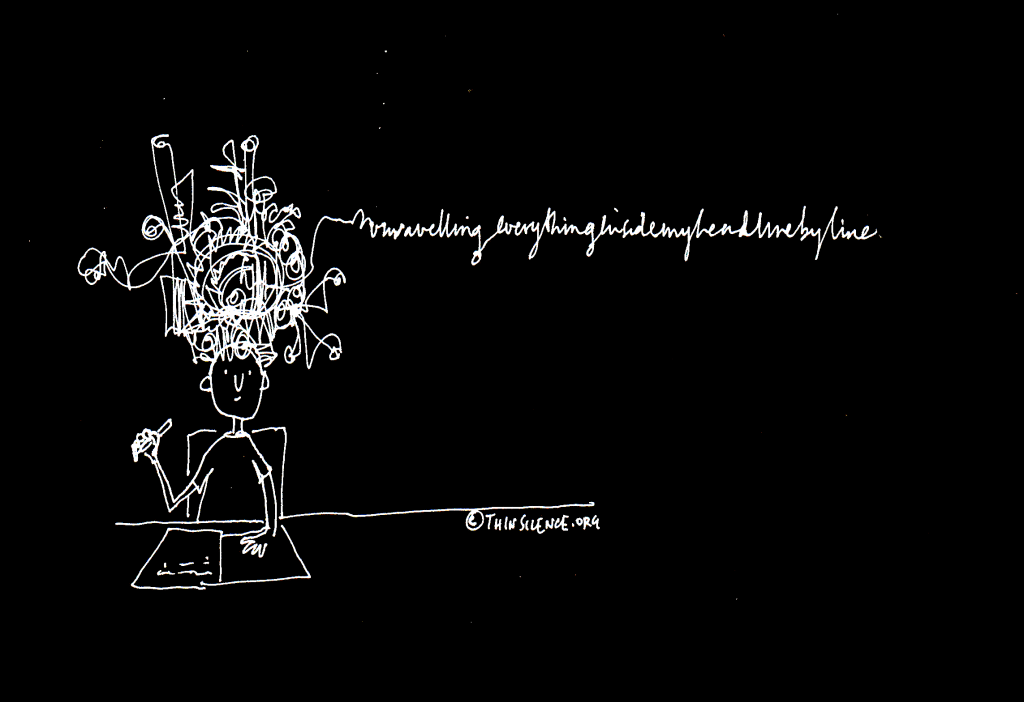 unravelling everything inside my head line by line.
© THINSILENCE.ORG